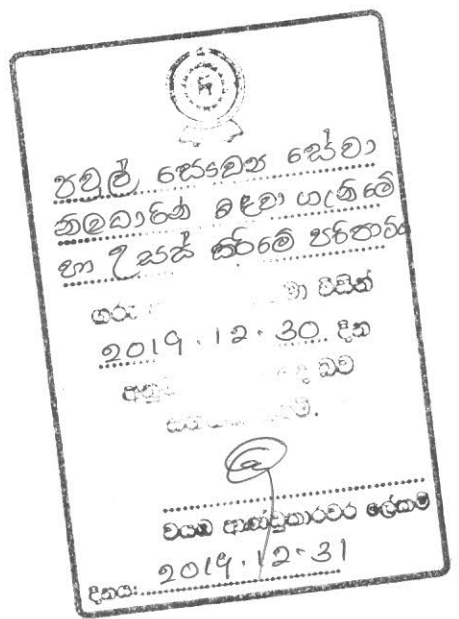 පවුල් සෞඛ්‍ය සේවා
නිලධාරින් බඳවා ගැනීමේ
හා උසස් කිරීමේ පරිපාටිය
ගරු
විසින්
2019.12.30. දින
බව
වයඹ ආණ්ඩුකාරවර ලේකම්
දිනය: 2019.12.31